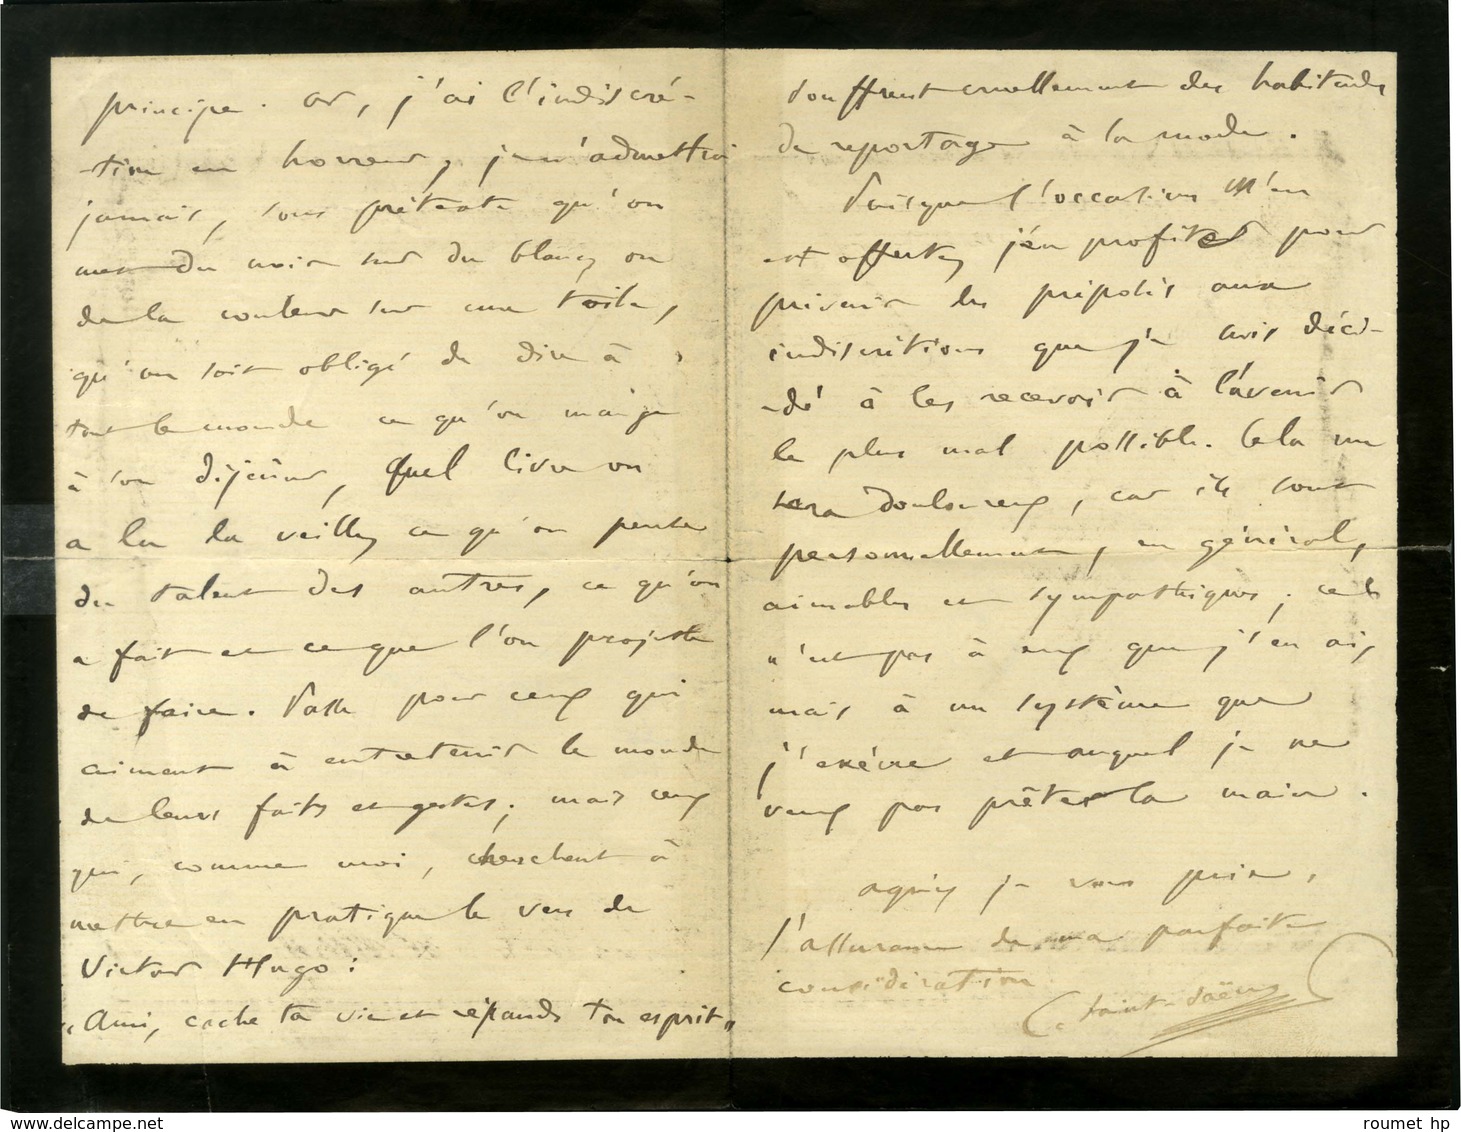 principe. Or, j'ai l'indiscré-
-tion en horreur, je n'admettrai
jamais, sous prétexte qu'on
met du noir sur du blanc, ou
de la couleur sur une toile,
qu'on soit obligé de dire à
tout le monde ce qu'on mange
à son déjeûner, quel livre on
a lu la veille, ce qu'on pense
du talent des autres, ce qu'on
a fait et ce que l'on projette
de faire. Passe pour ceux qui
aiment à entretenir le monde
de leurs faits et gestes; mais ceux
qui, comme moi, cherchent à
mettre en pratique le vers de
Victor Hugo:
"Ami, cache ta vie et répands ton esprit"
souffrent cruellement des habitudes
de reportage à la mode.
Puisque l'occasion m'en
est offerte, j'en profite pour
prévenir les préposés aux
indiscrétions que je suis déci-
-dé à les recevoir à l'avenir
le plus mal possible. Cela me
sera douloureux, car ils sont
personnellement, en général,
aimables et sympathiques; ce
n'est pas à eux que j'en ai,
mais à un système que
j'exècre et auquel je ne
veux pas prêter la main.
agréez je vous prie,
l'assurance de ma parfaite
considération
C. Saint-Saëns
roumet hp